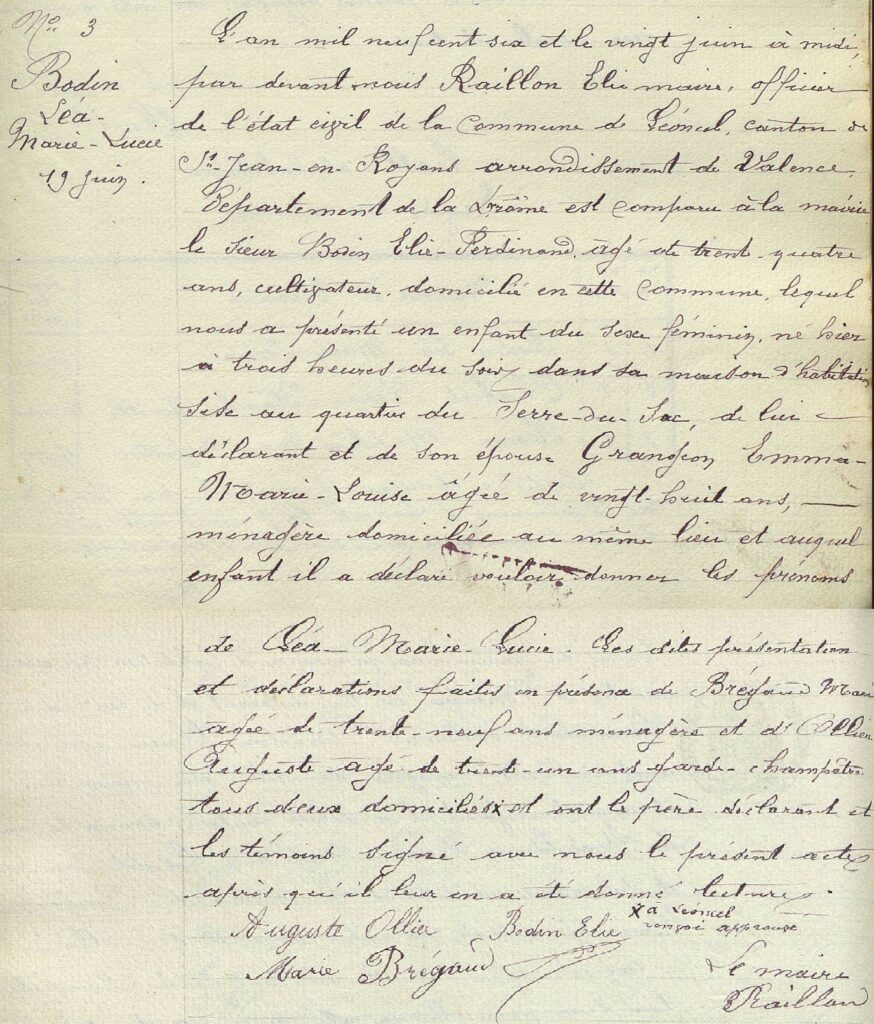 No 3
Bodin
Léa-
Marie-Lucie
19 juin.
L'an mil neuf cent six et le vingt juin à midi,
par devant nous Raillon Elie maire, officier
de l'état civil de la Commune de Léoncel, canton de
St-Jean-en-Royans arrondissement de Valence,
Département de la Drôme est comparu à la mairie
le sieur Bodin Elie-Ferdinand, âgé de trente-quatre
ans, cultivateur, domicilié en cette commune, lequel
nous a présenté un enfant du sexe féminin, né hier
à trois heures du soir dans sa maison d'habitation
sise au quartier du Serre-du-Sac, de lui
déclarant et de son épouse Grangeon Emma-
Marie-Louise âgée de vingt-huit ans,
ménagère domiciliée au même lieu et auquel
enfant il a déclaré vouloir donner les prénoms
de Léa-Marie-Lucie. Les dites présentation
et déclarations faites en présence de Brégaud Marie
agée de trente-neuf ans ménagère et d'Ollier
Auguste agé de trente-un ans garde-champêtre
tous deux domiciliés x et ont le père déclarant et
les témoins signé avec nous le présent acte
après qu'il leur en a été donné lecture.
x à Léoncel
renvoi approuvé
Auguste Ollier Bodin Elie
Marie Brégaud
Le maire
Raillon